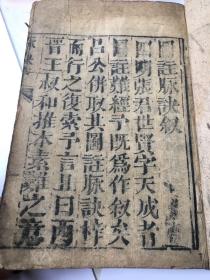 圖註脉訣叙
四明張君世賢字天成者
圖註難經予既為作叙矣
吕公併取其圖註脉訣梓
而行之復索予言其曰西
晋王叔和推本素難之意